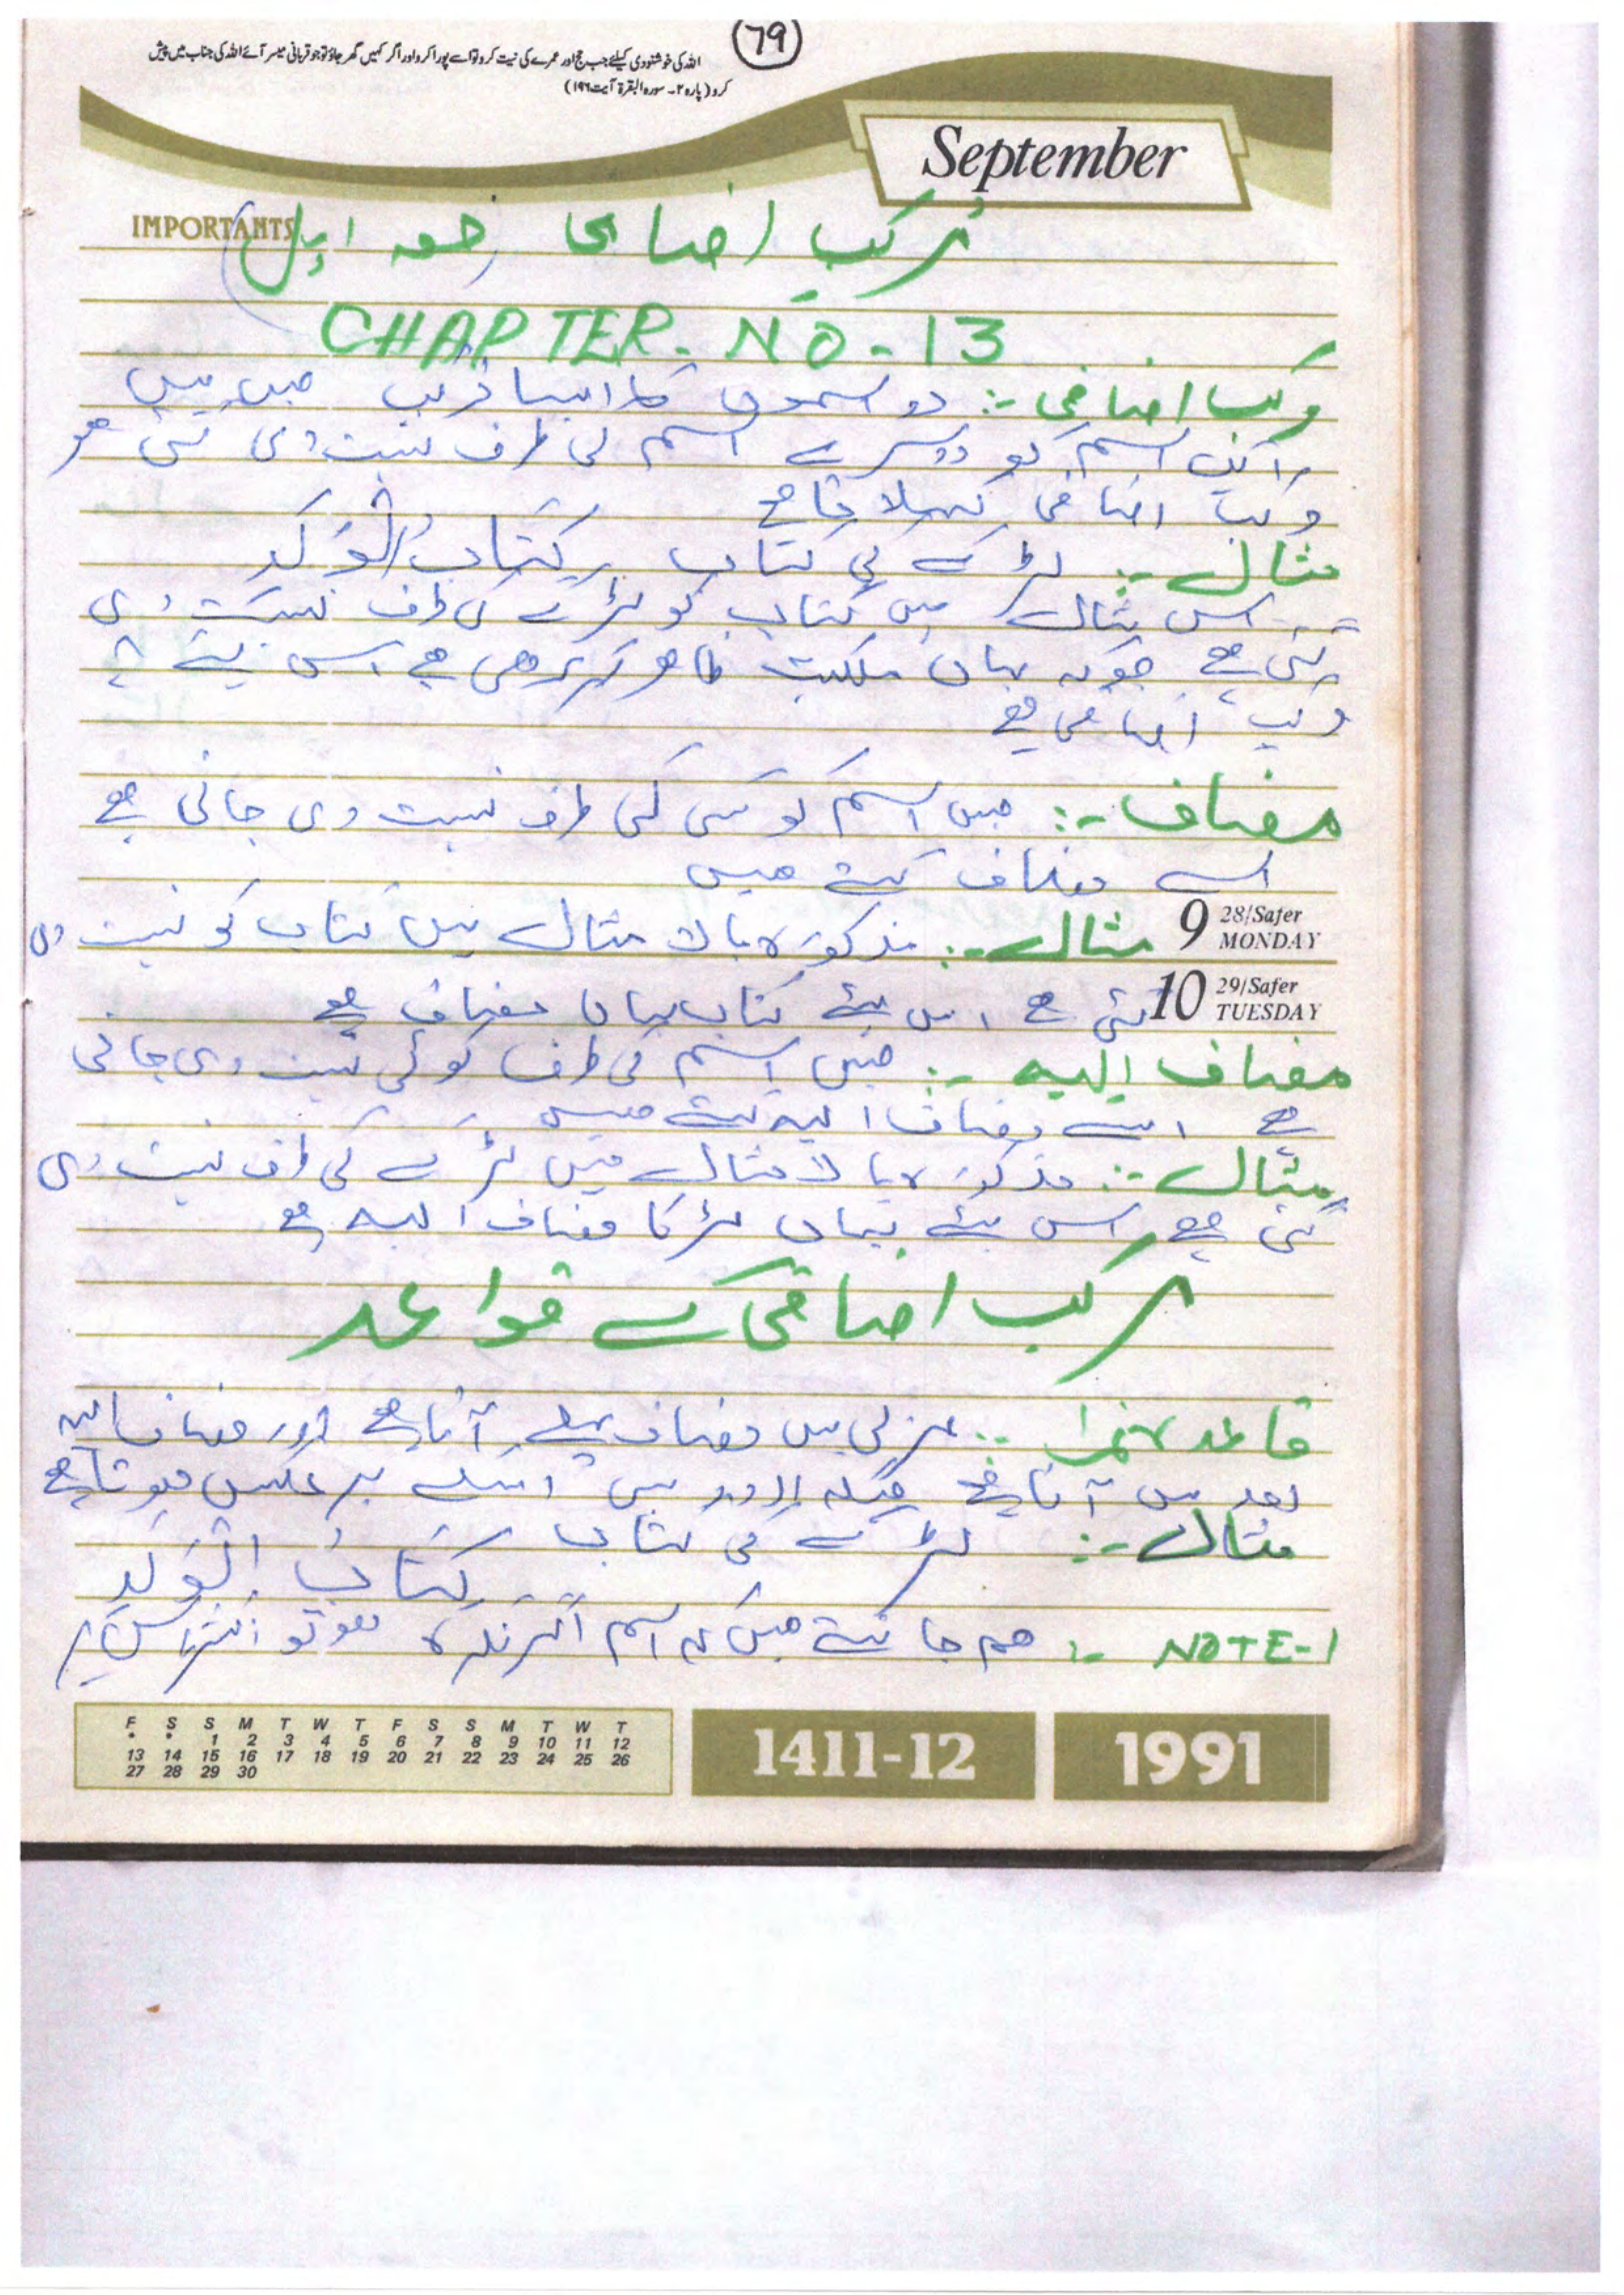 79
اللہ کی خوشنودی کیلئے جب حج اور عمرے کی نیت کرو تو اسے پورا کرو اور اگر کہیں گھر جاؤ تو جو قربانی میسر آئے اللہ کی جناب میں پیش
کرو (پارہ ۲۔ سورہ البقرۃ آیت ۱۹۶)
September
IMPORTANTS
مرکب اضافی (حصہ اول)
CHAPTER-NO-13
مرکب اضافی :- دو اسموں کا ایسا مرکب جس میں
ایک اسم کو دوسرے اسم کی طرف نسبت دی گئی ہو
مرکب اضافی کہلاتا ہے
مثال :- لڑکے کی کتاب کِتَابُ الْوَلَدِ
اس مثال میں کتاب کو لڑکے کی طرف نسبت دی
گئی ہے چونکہ یہاں ملکیت ظاہر ہو رہی ہے اس لیے یہ
مرکب اضافی ہے
مضاف :- جس اسم کو کسی کی طرف نسبت دی جاتی ہے
اسے مضاف کہتے ہیں
9 28/Safer MONDAY
مثال :- مذکورہ بالا مثال میں کتاب کو نسبت دی
10 29/Safer TUESDAY
گئی ہے اس لئے کتاب یہاں مضاف ہے
مضاف الیہ :- جس اسم کی طرف کوئی نسبت دی جاتی
ہے اسے مضاف الیہ کہتے ہیں
مثال :- مذکورہ بالا مثال میں لڑکے کی طرف نسبت دی
گئی ہے اس لئے یہاں لڑکا مضاف الیہ ہے
مرکب اضافی کے قواعد
قاعدہ نمبر ۱ :- عربی میں مضاف پہلے آتا ہے اور مضاف الیہ
بعد میں آتا ہے جبکہ اردو میں اسکے برعکس ہوتا ہے
مثال :- لڑکے کی کتاب
کِتَابُ الْوَلَدِ
NOTE-1 :- ہم جانتے ہیں کہ اسم اگر نکرہ ہو تو اکثر اس پر
F S S M T W T F S S M T W T
* * 1 2 3 4 5 6 7 8 9 10 11 12
13 14 15 16 17 18 19 20 21 22 23 24 25 26
27 28 29 30
1411-12
1991